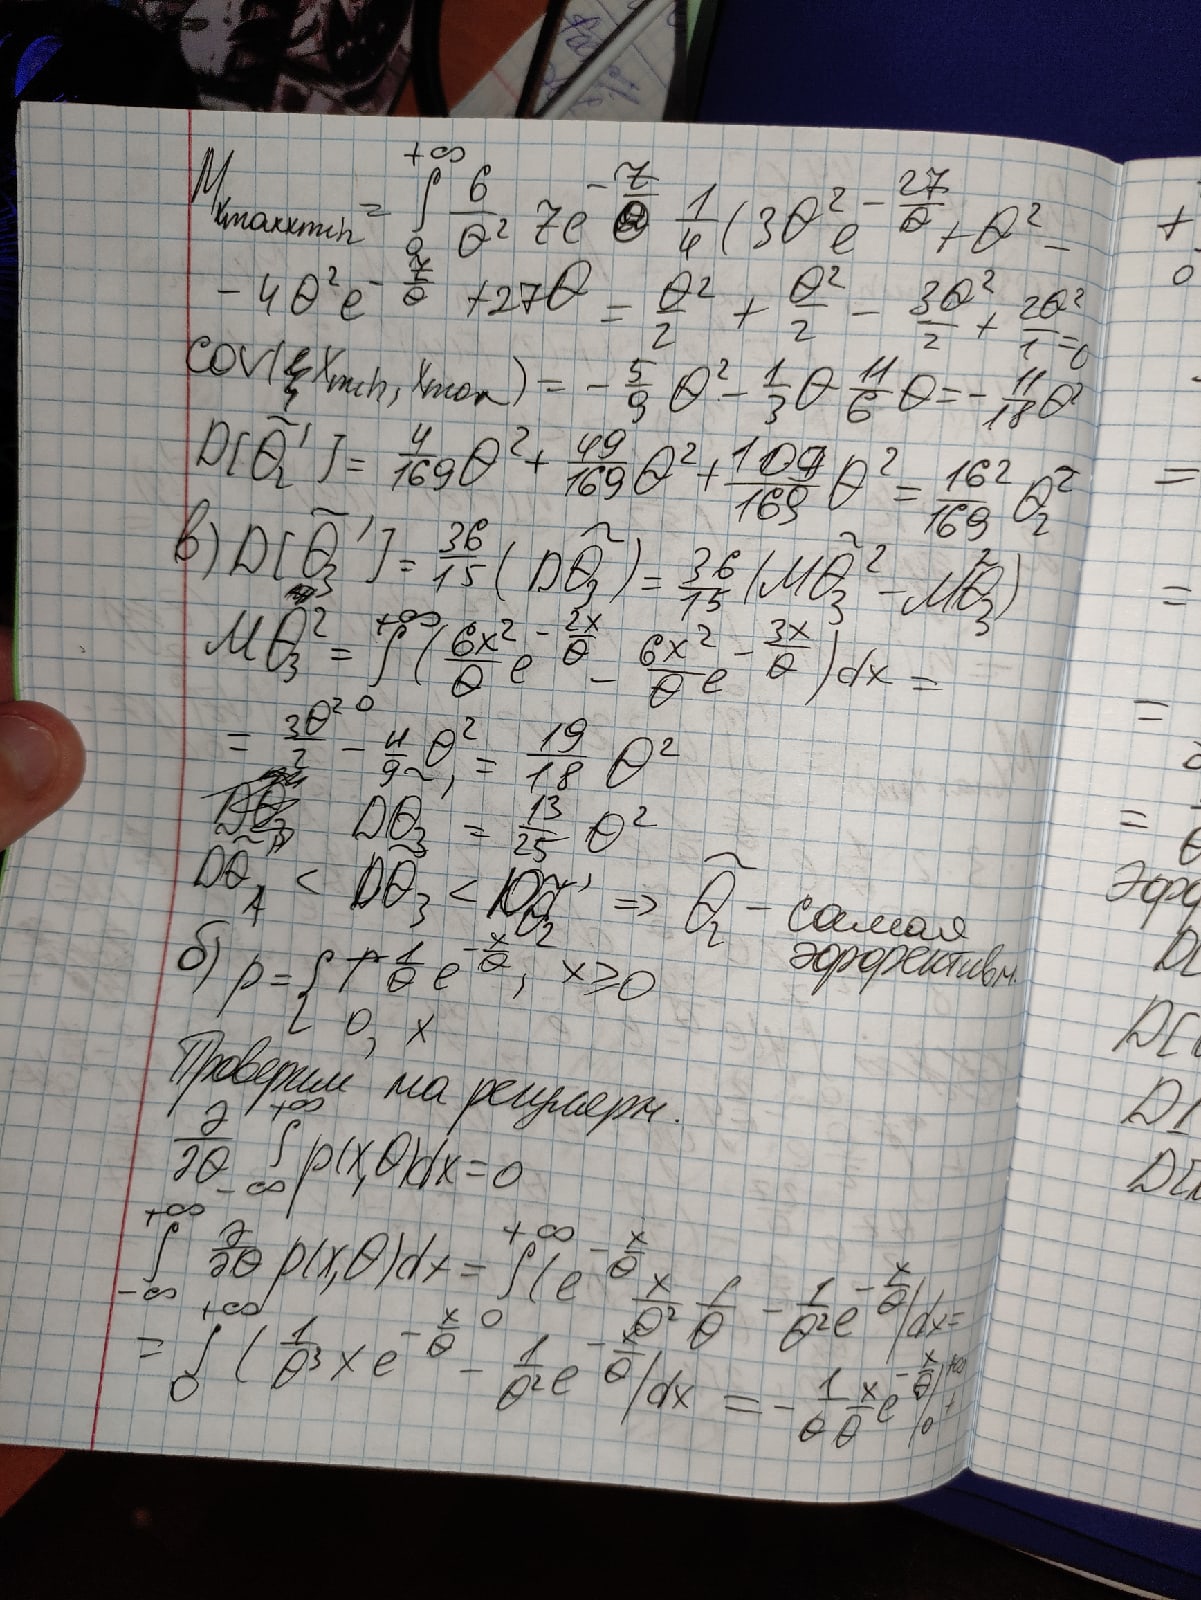 M_{x_{max}x_{min}} = ∫_0^{+∞} 6/θ² z e^{-z/θ} 1/4 (3θ² e^{-2z/θ} + θ² -
- 4θ² e^{-z/θ} + 2zθ = θ²/2 + θ²/2 - 3θ²/2 + 2θ²/1 = 0
cov(x_{min}, x_{max}) = - 5/9 θ² - 1/3 θ 11/6 θ = - 11/18 θ²
D[θ̃₂'] = 4/169 θ² + 49/169 θ² + 109/169 θ² = 162/169 θ₂²
в) D[θ̃₃'] = 36/15 (Dθ̃₃) = 36/15 (Mθ̃₃² - M²θ̃₃)
Mθ̃₃² = ∫_0^{+∞} (6x²/θ e^{-2x/θ} - 6x²/θ e^{-3x/θ}) dx =
= 3θ²/2 - 4/9 θ² = 19/18 θ²
Dθ̃₃' = 13/25 θ²
Dθ̃₁ < Dθ̃₃ < Dθ̃₂' ⇒ θ̃₂ - самая
эффективн.
б) p = { 1/θ e^{-x/θ}, x ≥ 0
0, x
Проверим на регулярн.
∂/∂θ ∫_{-∞}^{+∞} p(x,θ)dx = 0
∫_{-∞}^{+∞} ∂/∂θ p(x,θ)dx = ∫_0^{+∞} (e^{-x/θ} x/θ² 1/θ - 1/θ² e^{-x/θ})dx =
= ∫_0^{+∞} (1/θ³ x e^{-x/θ} - 1/θ² e^{-x/θ})dx = - 1/θ x/θ e^{-x/θ} |_0^{+∞} +